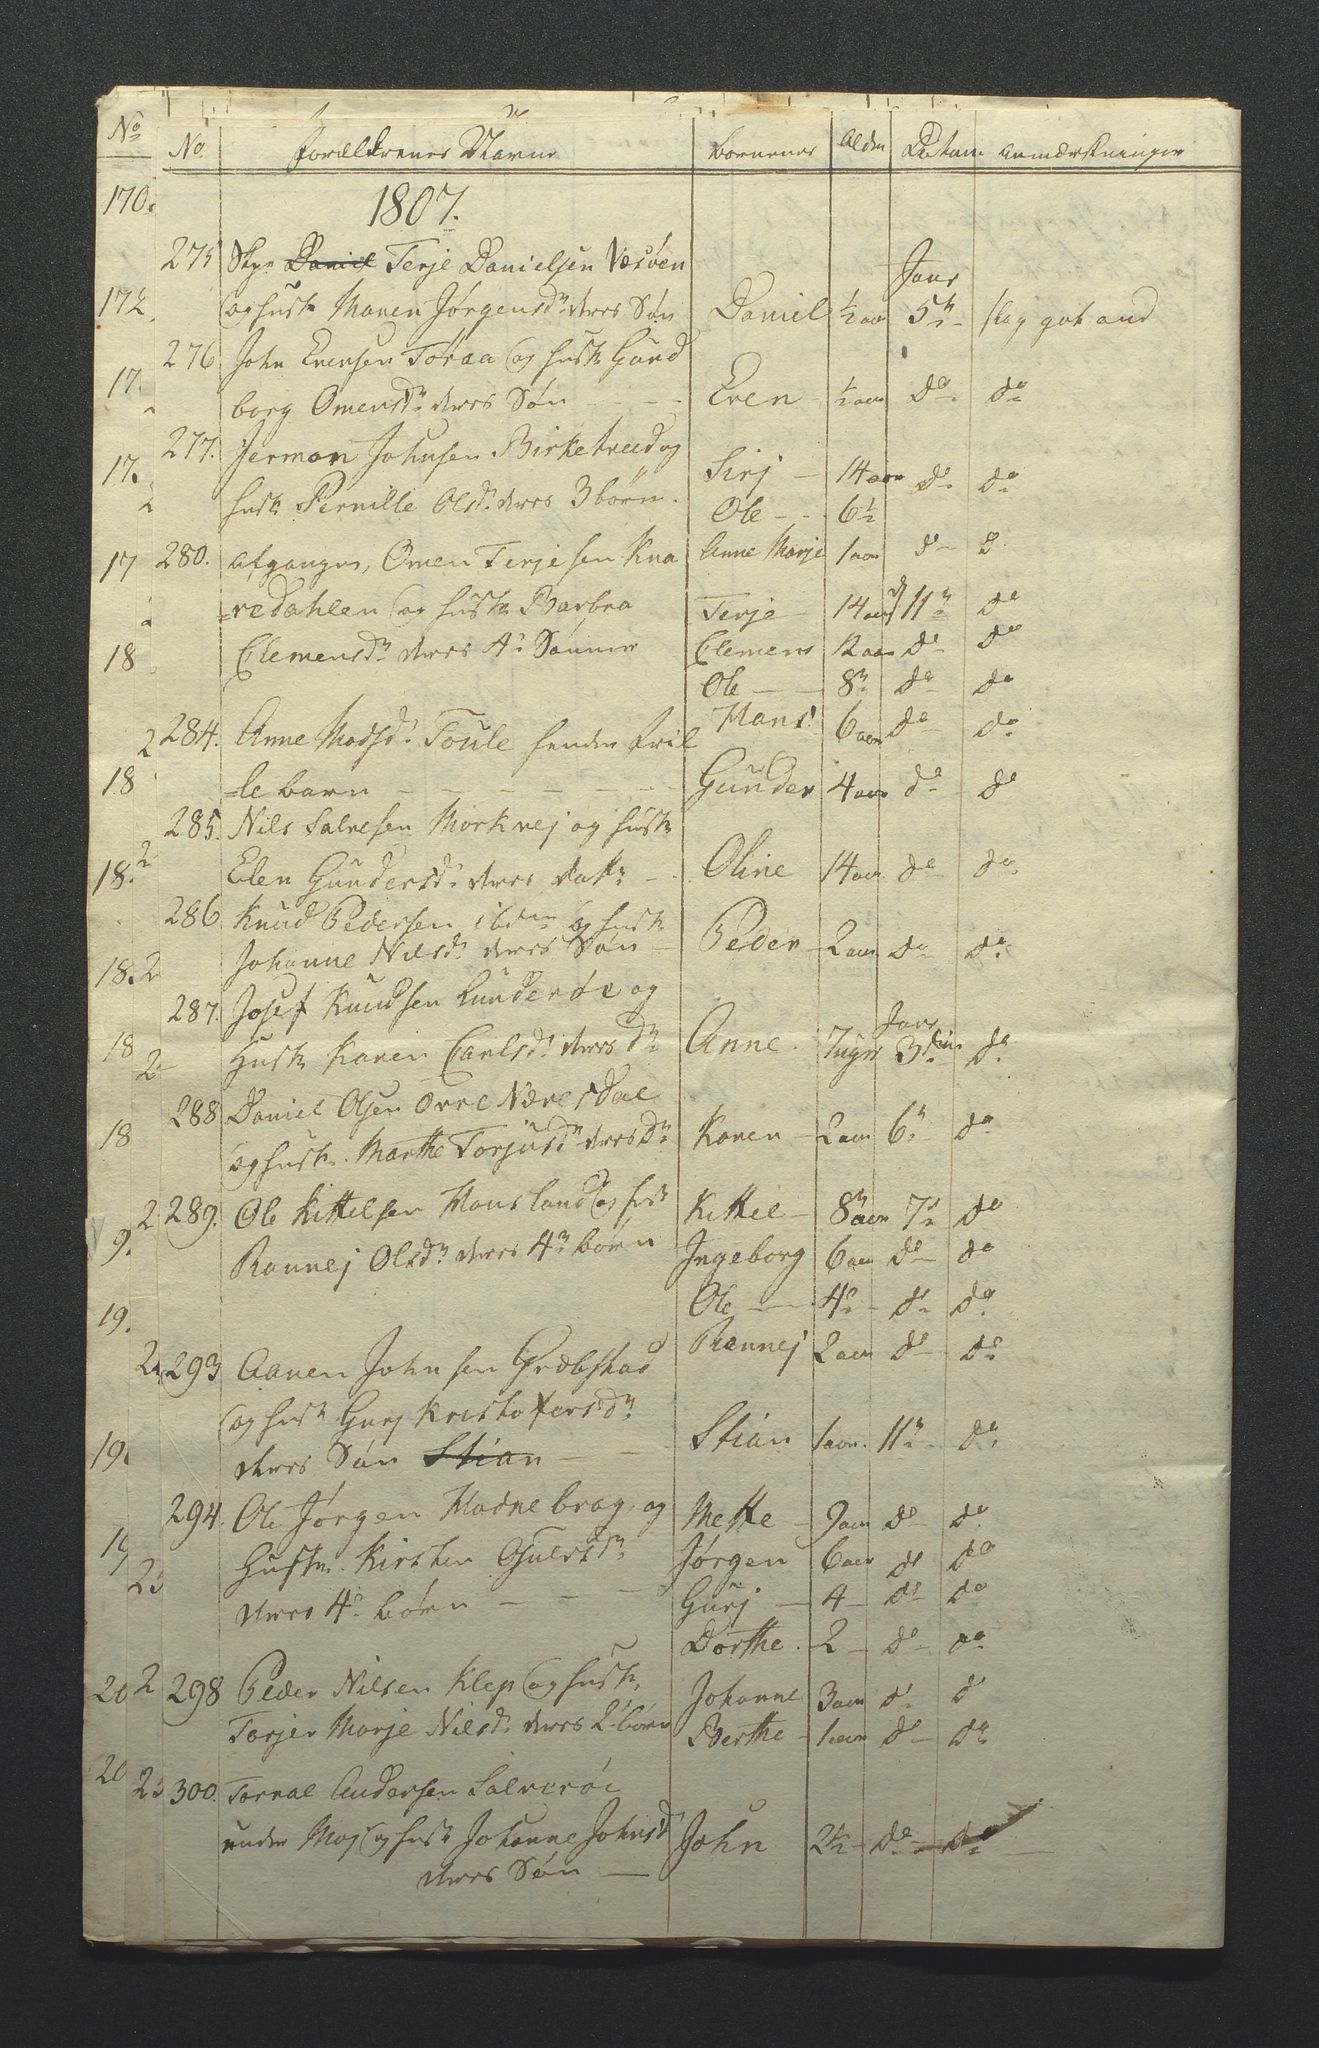 No No Forældrenes Navne Børnenes Alder Datum Anmærkninger
170. 1807.
275 Skpr Daniel Terje Danielsen Næsøen Janr
og hustr Maren Jørgensdr deres Søn Daniel ½ aar 5te slog got and
276 John Evensen Toraa og hustr Gund
borg Omensdr deres Søn - - - Even - ½ aar do do
277. Jermon Johnsen Birketveed og Sirj - 14 aar do do
hustr Pernille Olsdr deres 3 børn. Ole - - 6½
280. afgangne, Omen Terjesen Kna Anne Marje 1 aar do do
redahlen og hustr Barbra Terje - 14 aar 11te do
18 Clemensdr deres 4re Sønner Clemens 12 aar do do
Ole - - 8te do do
2 284. Anne Madsdr Toule hendes fril Hans 6 aar do do
18 le barn - - - - - - Gunder 4 aar do do
285. Nils Salvesen Morkvej og hustr
18. 2 Elen Gundersdr deres datr - Oline 14 aar do do
286 Knud Pedersen ibdm og hustr
18. 2 Johanne Nilsdr deres Søn - Peder - 2 aar do do
287. Josef Knudsen Lunderøe og Janr
18 2 Hustr Karen Carlsdr deres dr Anne. 7 uger 3die do
288 Daniel Olsen øvre Nævesdal
18 og hustr. Marthe Torjusdr deres dr Karen - 2 aar 6te do
2 289. Ole Kittelsen Hausland og hustr Kittil - 8te aar 7de do
9. Rannej Olsdr deres 4re børn Ingeborg 6 aar do do
19. Ole - - 4re - do do
2 293 Aanen Johnsen Grebstad Rannej 2 aar do do
og hustr Gurj Kristofersdr
19. deres Søn Stian - - Stian 1 aar. 11te do
294. Ole Jørgen Hodnebrog og Mette - 9 aar do do
19 23 Hustr. Kirsten Gulessdr Jørgen 6 aar do do
deres 4re børn - - - Gurj - 4 - do do
Dorthe. - 2 - do do
20 2 298 Peder Nilsen Klep og hustr Johanne 3 aar do do
Torjer Marje Nilsdr deres 2de børn Berthe - 1 aar do do
20 23 300. Torval Andersen Salverøe
under Moj og hustr Johanne Johnsd John 2½ - do - do
deres Søn -